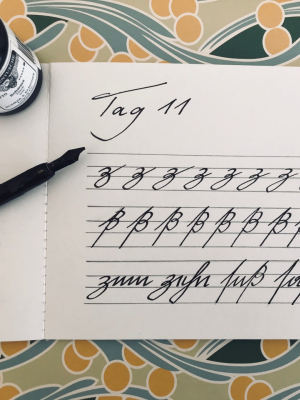 Tag 11
z z z z z z z
ß ß ß ß ß ß ß
zum zehn